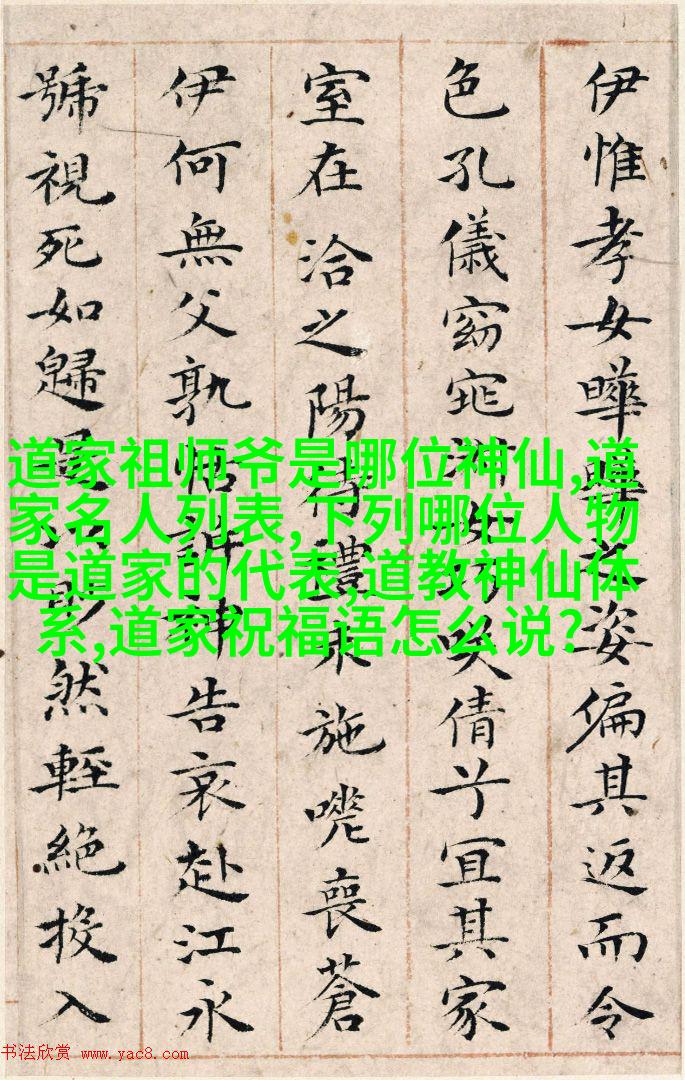 伊惟孝女曄曄之姿偏其返而令
色孔儀窈窕淑女巧咲倩兮宜其家
室在洽之陽待禮未施嗟喪蒼
伊何無父孰怙訴神告哀赴江永
號視死如歸是以眇然輕絕投入
道家祖师爷是哪位神仙,道
家名人列表,下列哪位人物
是道家的代表,道教神仙体
系,道家祝福语怎么说?
书法欣赏 www.yac8.com